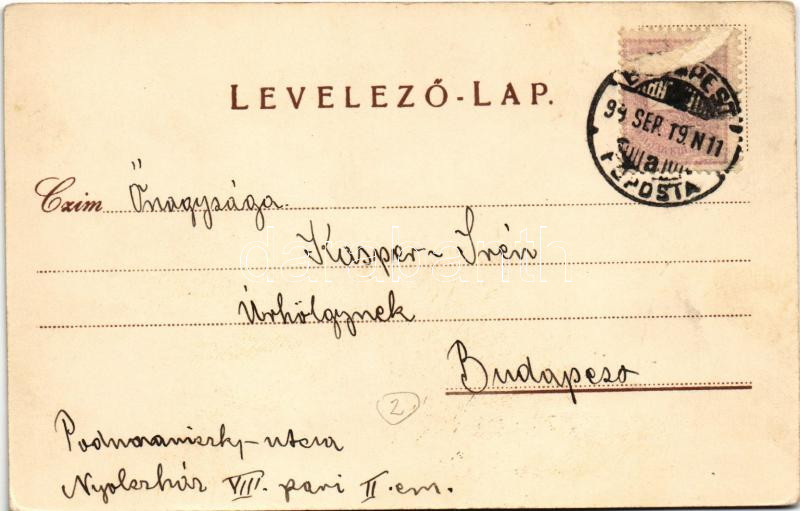 LEVELEZŐ-LAP.
BUDAPEST
99 SEP. 19. N 11
a
FŐPOSTA
Czim Őnagysága
Kasper Irén
Úrhölgynek
Budapest
Podmaniczky-utcza
Nyolczház VIII. pari II. em.
2